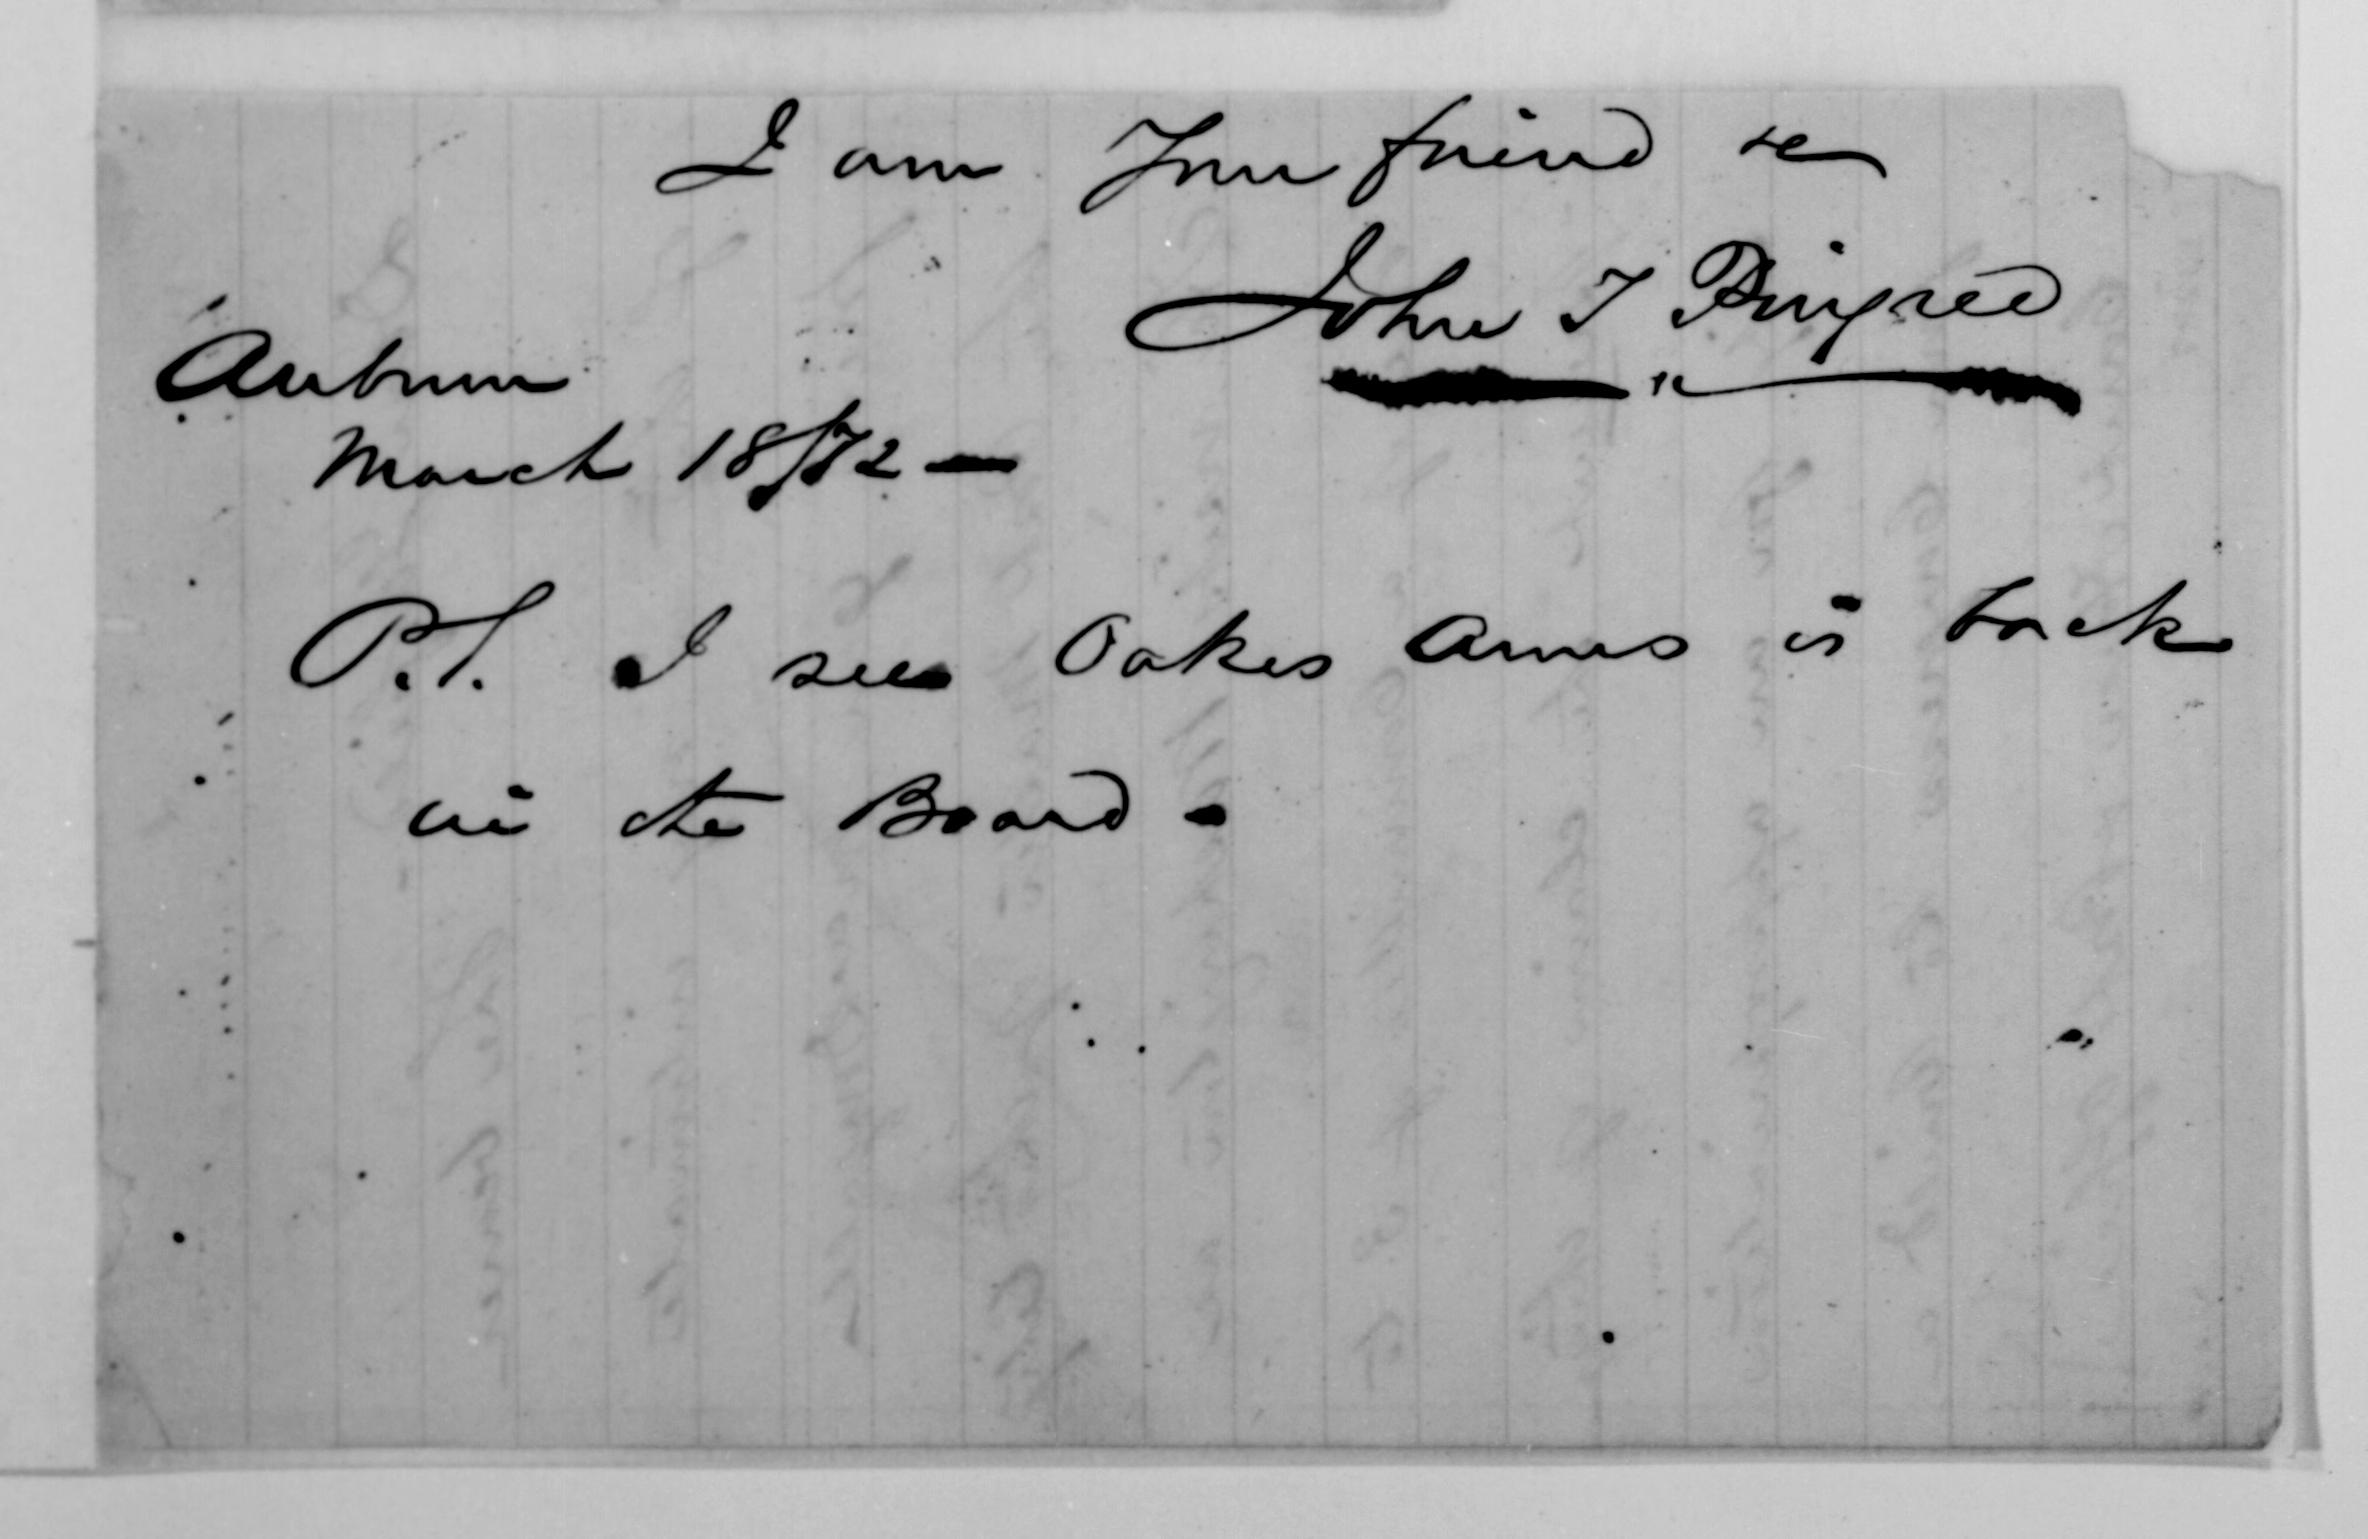 I am Your friend &c
John T Pingree
Auburn
March 18/72 —
P.S. I see Oakes Ames is back
in the Board -